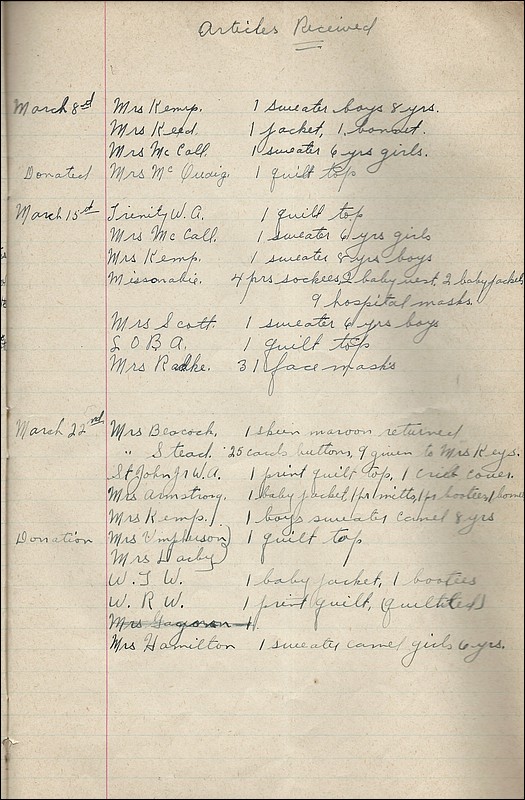 Articles Received
March 8th Mrs Kemp. 1 sweater boys 8 yrs.
Mrs Reed. 1 jacket, 1 bonnet.
Mrs McCall. 1 sweater 6 yrs girls.
Donated Mrs Mc 1 quilt top
March 15th Trinity W.A. 1 quilt top
Mrs McCall. 1 sweater 6 yrs girls
Mrs Kemp. 1 sweater 8 yrs boys
Missanabie. 4 prs sockees, 2 baby vest, 2 baby jackets
9 hospital masks.
Mrs Scott. 1 sweater 6 yrs boys
L O B A. 1 quilt top
Mrs Radke. 31 face masks
March 22nd Mrs Beacock. 1 skein maroon returned
" Stead. 25 cards buttons, 9 given to Mrs Keys.
St John Jr W.A. 1 print quilt top, 1 crib cover.
Mrs Armstrong. 1 baby jacket 1 pr mitts, 1 pr bootees, 1 bonnet
Mrs Kemp. 1 boys sweater camel 8 yrs
Donation Mrs Umpherson) 1 quilt top
Mrs Darby)
W. J. W. 1 baby jacket, 1 bootees
W. R. W. 1 print quilt, (quilted)
Mrs 1
Mrs Hamilton 1 sweater camel girls 6 yrs.